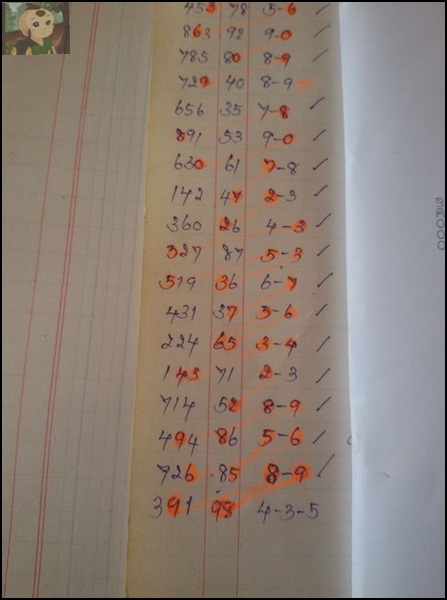 453 78 5-6
863 92 9-0
785 80 8-9
729 40 8-9
656 35 7-8
891 53 9-0
630 61 7-8
142 47 2-3
360 26 4-3
327 87 5-3
519 36 6-7
431 37 5-6
224 65 3-4
143 71 2-3
714 52 8-9
494 86 5-6
726 85 8-9
391 98 4-3-5